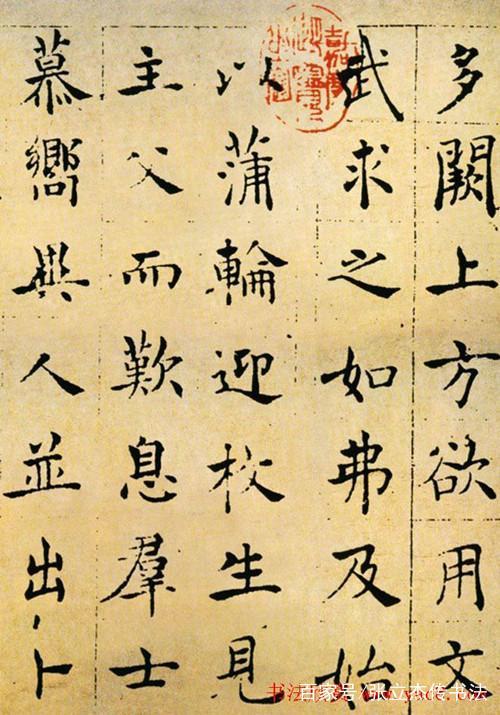 多闕上方欲用文
武求之如弗及始
以蒲輪迎枚生見
主父而歎息羣士
慕嚮異人並出卜
百家号/张立杰传书法